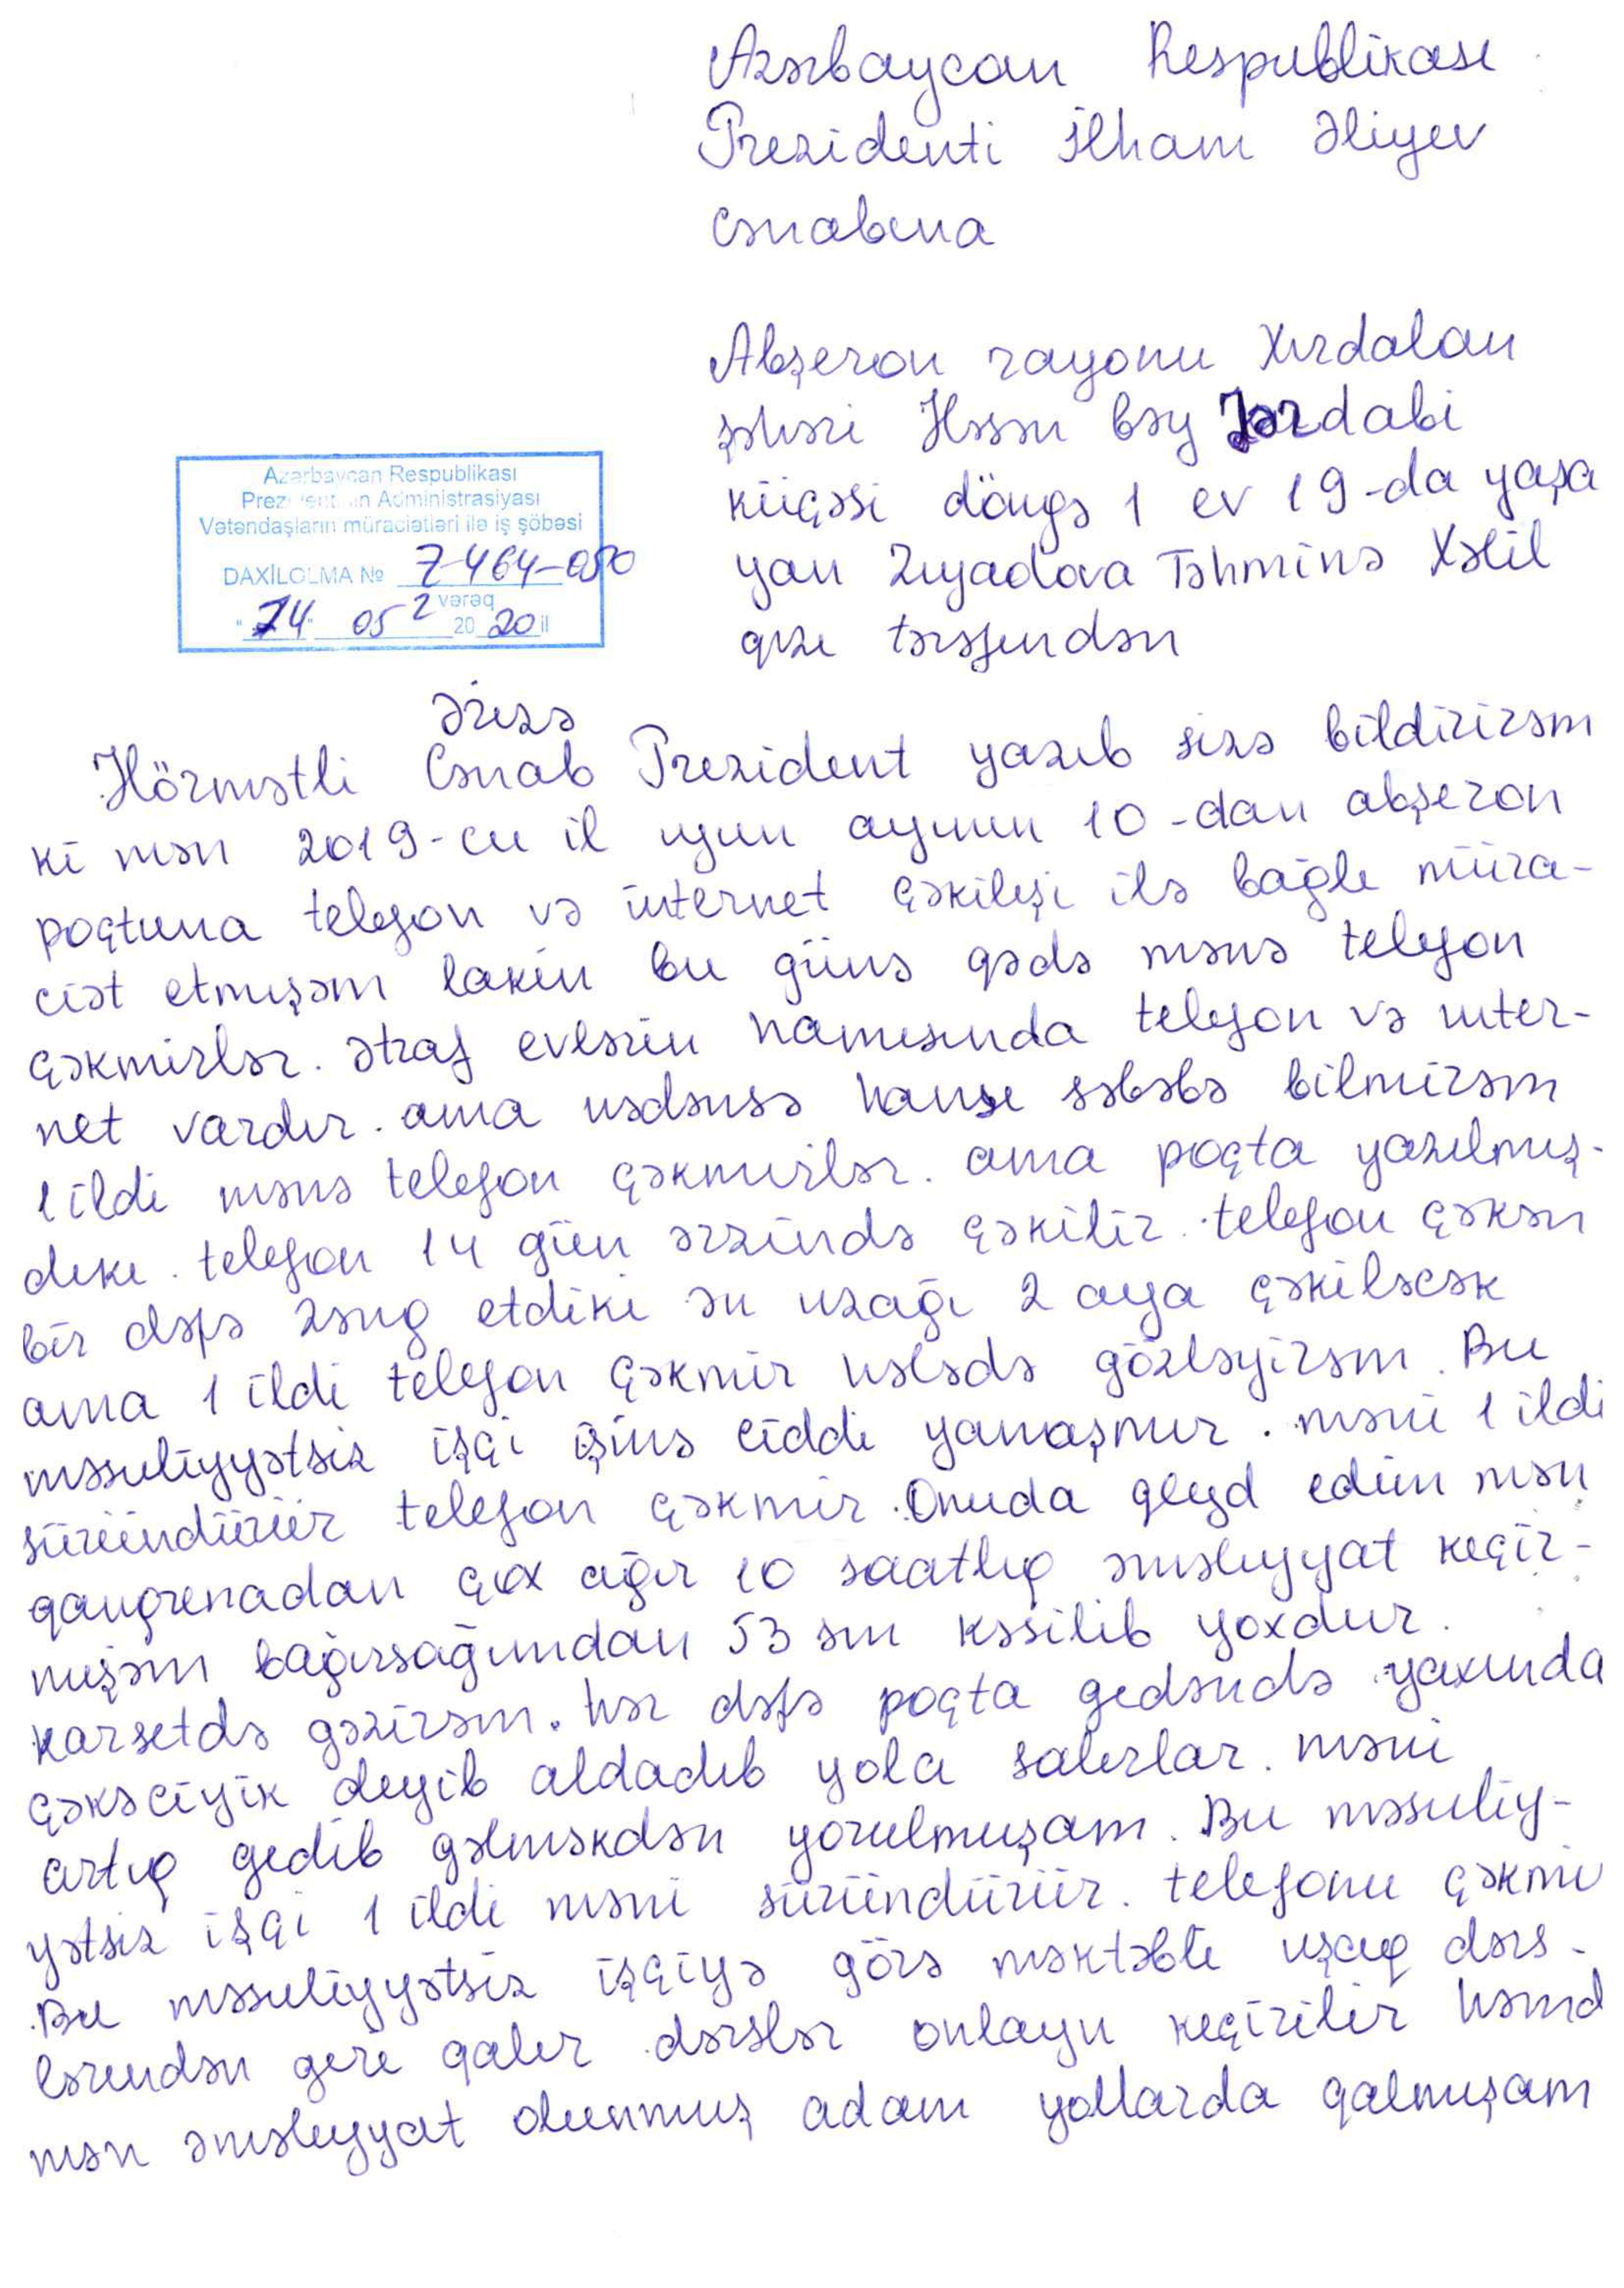 Azərbaycan Respublikası
Prezidenti İlham Əliyev
Cənabına
Abşeron rayonu Xırdalan
şəhəri Həsən bəy Zərdabi
küçəsi döngə 1 ev 19-da yaşa
yan Zıyadova Təhminə Xəlil
qızı tərəfindən
Azərbaycan Respublikası
Prezidentinin Administrasiyası
Vətəndaşların müraciətləri ilə iş şöbəsi
DAXİLOLMA № 7-464-050
2 vərəq
"14" 05 2020 il
Ərizə
Hörmətli Cənab Prezident yazıb sizə bildirirəm
ki mən 2019-cu il iyun ayının 10-dan abşeron
poçtuna telefon və internet çəkilişi ilə bağlı müra-
ciət etmişəm lakin bu günə qədə mənə telefon
çəkmirlər. Ətraf evlərin hamısında telefon və inter-
net vardır. ama nədənsə hansı səbəbə bilmirəm
1 ildi mənə telefon çəkmirlər. ama poçta yazılmış-
dıki. telefon 14 gün ərzində çəkilir. telefon çəkən
bir dəfə zəng etdiki ən uzağı 2 aya çəkiləcək
ama 1 ildi telefon çəkmir hələdə gözləyirəm. Bu
məsuliyyətsiz işçi işinə ciddi yanaşmır. məni 1 ildi
süründürür telefon çəkmir. Onuda qeyd edim mən
qanqrenadan çox ağır 10 saatlıq əməliyyat keçir-
mişəm bağırsağımdan 53 sm kəsilib yoxdur.
karsetdə gəzirəm. hər dəfə poçta gedəndə yaxında
çəkəciyik deyib aldadıb yola salırlar. məni
artıq gedib gəlməkdən yorulmuşam. Bu məsuliy-
yətsiz işçi 1 ildi məni süründürür. telefonu çəkmi
Bu məsuliyyətsiz işçiyə görə məktəbli uşaq dərs-
lərindən geri qalır. dərslər onlayn keçirilir həmd
mən əməliyyat olunmuş adam yollarda qalmışam